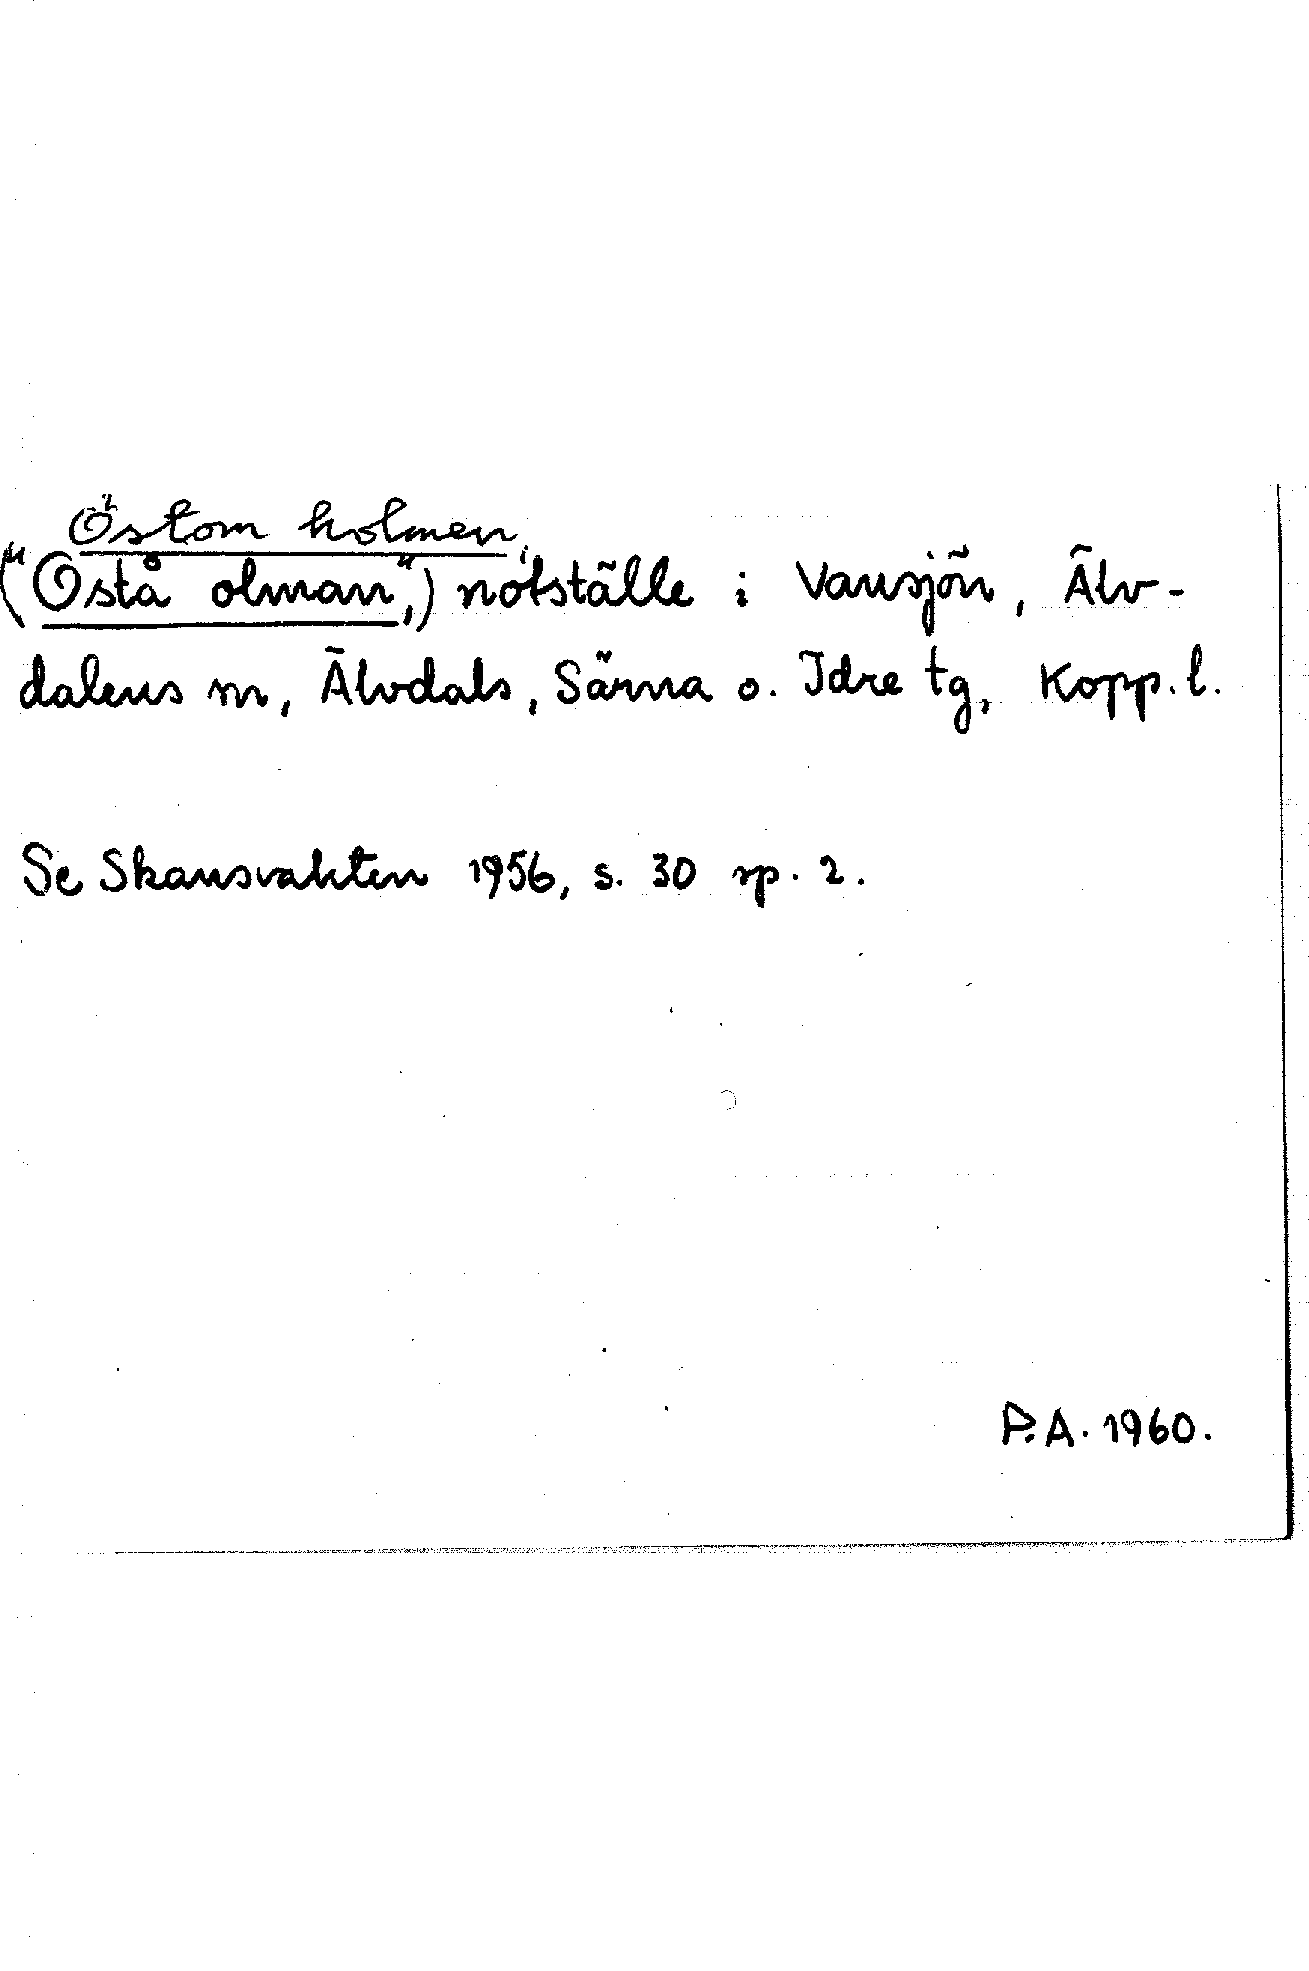 Östom holmen,
("Ostå olman",) notställe i Vansjön, Älv-
dalens m, Älvdals, Särna o. Idre tg, Kopp. l.
Se Skansvakten 1956, s. 30 sp. 2.
P.A. 1960.